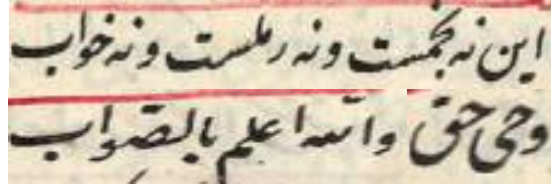 این نه نجمست ونه رملست ونه خواب
وحی حق والله اعلم بالصواب